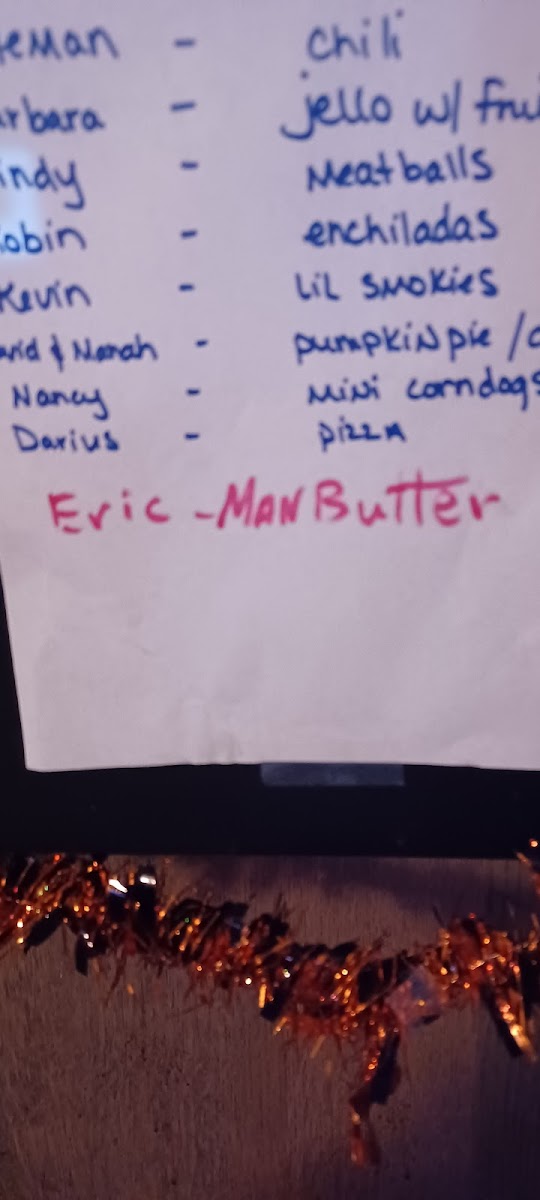 eman - chili
rbara - jello w/ frui
indy - Meatballs
obin - enchiladas
Kevin - Lil smokies
avid & Norah - pumpkin pie /
Nancy - Mini corndogs
Darius - pizza
Eric - ManButter